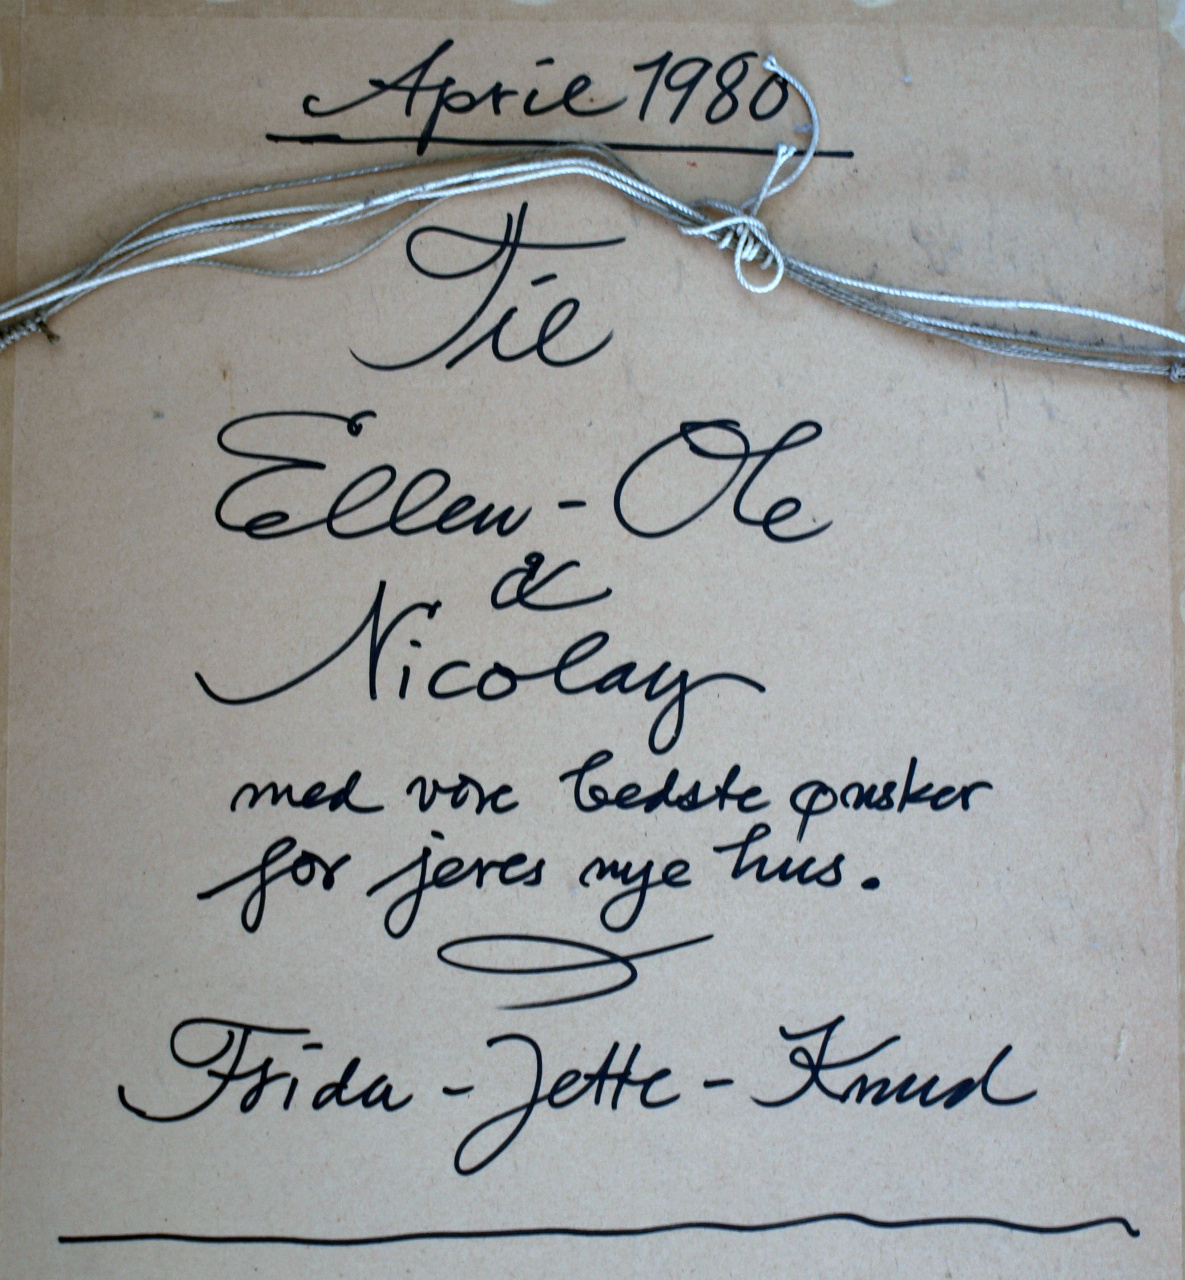 April 1980
Til
Ellen - Ole
&
Nicolay
med vore bedste ønsker
for jeres nye hus.
Frida - Jette - Knud